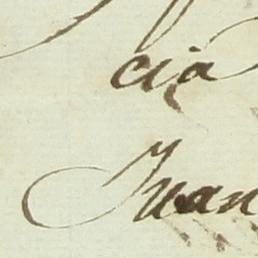 cia
Juan